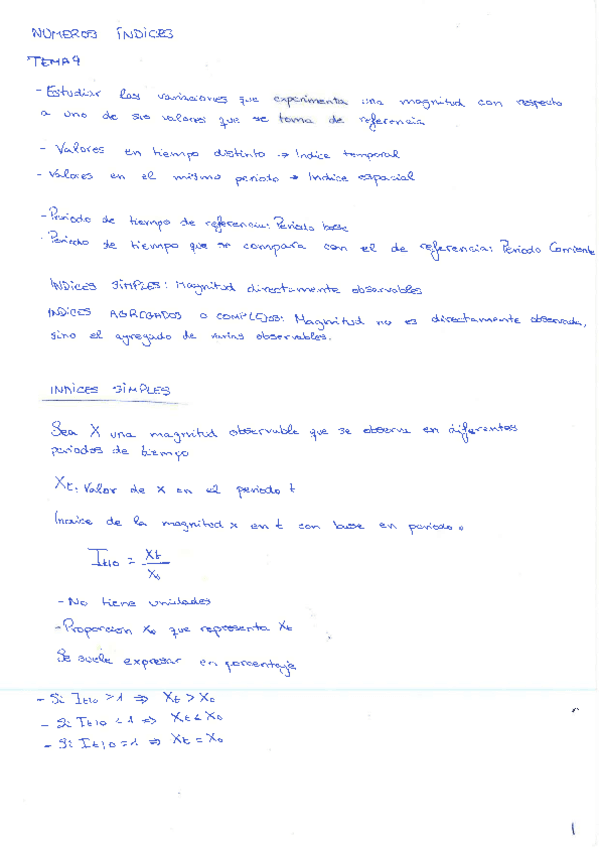 NUMEROS ÍNDICES
TEMA 9
- Estudiar las variaciones que experimenta una magnitud con respecto
a uno de sus valores que se toma de referencia
- Valores en tiempo distinto → Indice temporal
- Valores en el mismo periodo → Indice espacial
- Periodo de tiempo de referencia: Periodo base
- Periodo de tiempo que se compara con el de referencia: Periodo Corriente
INDICES SIMPLES: Magnitud directamente observables
INDICES AGREGADOS O COMPLEJOS: Magnitud no es directamente observada,
sino el agregado de varias observables.
INDICES SIMPLES
Sea X una magnitud observable que se observa en diferentes
periodos de tiempo
Xt: Valor de x en el periodo t
Indice de la magnitud x en t con base en periodo o
It|0 = Xt / X0
- No tiene unidades
- Proporcion X0 que representa Xt
Se suele expresar en porcentaje
- Si It|0 > 1 ⇒ Xt > X0
- Si It|0 < 1 ⇒ Xt < X0
- Si It|0 = 1 ⇒ Xt = X0
1